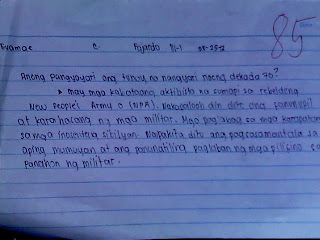 85
Evamae C. Fajardo III-1 08-25-12
Anong Pangyayari ang tunay na nangyari noong dekada 70?
may mga kabataang aktibista na sumapi sa rebeldeng
New People's Army o (NPA). Nakapaloob din dito ang panunupil
at karahasang ng mga militar. Mga pag labag sa mga karapatan
sa mga inosenteng sibilyan. Napakita dito ang pagsasamantala sa
aping mamayan at ang pananatiling paglaban ng mga pilipino sa
Panahon ng militar.